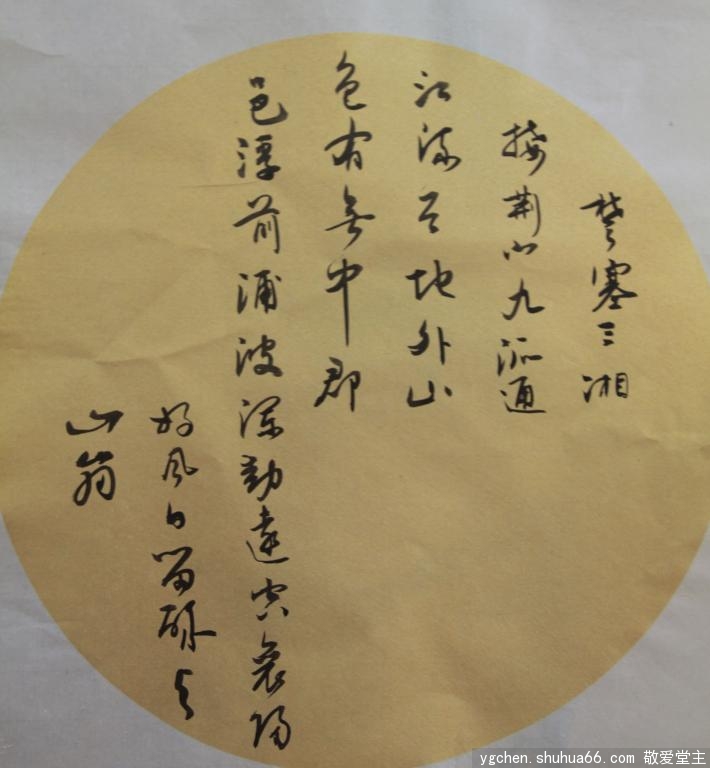 楚塞三湘
接荆門九派通
江流天地外山
色有無中郡
邑浮前浦波瀾動遠空襄陽
好風日留醉与
山翁
ygchen.shuhua66.com 敬爱堂主